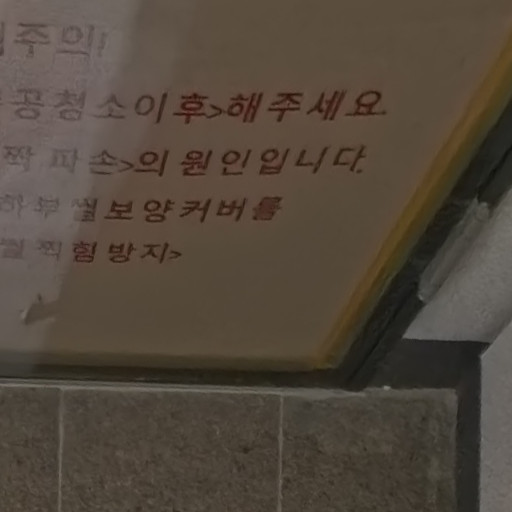 주의
공청소이후>해주세요.
짝 파손>의 원인입니다.
하부씰보양커버를
찍힘방지>